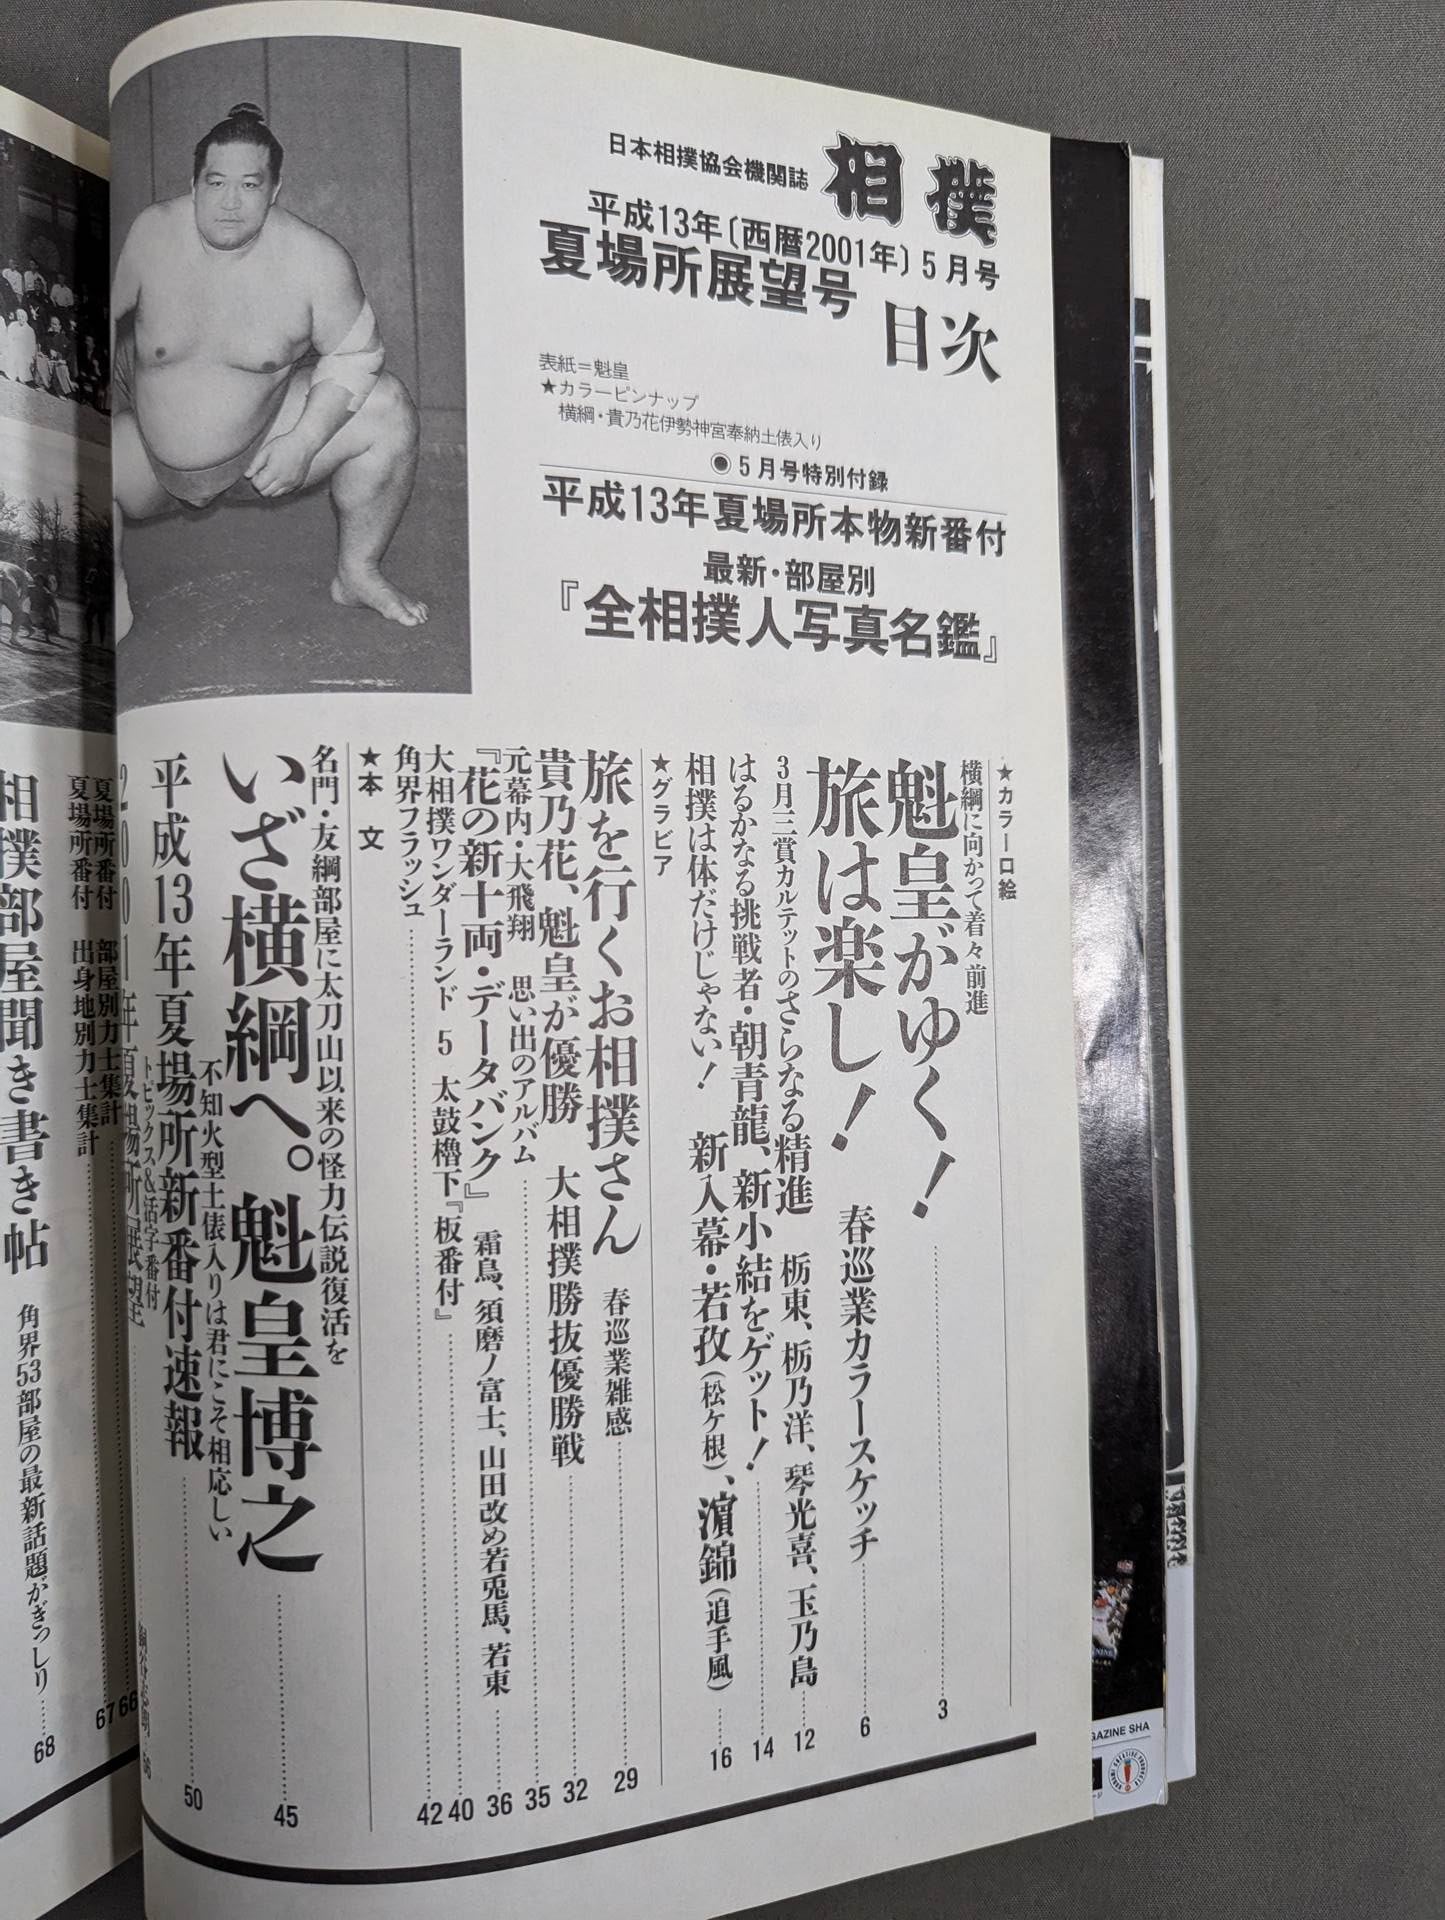 日本相撲協会機関誌
相撲
平成13年〔西暦2001年〕5月号
夏場所展望号
目次
表紙＝魁皇
★カラーピンナップ
横綱・貴乃花伊勢神宮奉納土俵入り
◉5月号特別付録
平成13年夏場所本物新番付
最新・部屋別
『全相撲人写真名鑑』
★カラー口絵
横綱に向かって着々前進
魁皇がゆく！ 3
旅は楽し！ 春巡業カラースケッチ 6
3月三賞カルテットのさらなる精進 栃東、栃乃洋、琴光喜、玉乃島 12
はるかなる挑戦者・朝青龍、新小結をゲット！ 14
相撲は体だけじゃない！ 新入幕・若孜（松ケ根）、濵錦（追手風） 16
★グラビア
旅を行くお相撲さん 春巡業雑感 29
貴乃花、魁皇が優勝 大相撲勝抜優勝戦 32
元幕内・大飛翔 思い出のアルバム 35
『花の新十両・データバンク』 霜鳥、須磨ノ富士、山田改め若兎馬、若東 36
大相撲ワンダーランド 5 太鼓櫓下『板番付』 40
角界フラッシュ 42
★本文
名門・友綱部屋に太刀山以来の怪力伝説復活を
いざ横綱へ。魁皇博之 45
不知火型土俵入りは君にこそ相応しい
平成13年夏場所新番付速報 50
トピックス&活字番付
2001年夏場所展望 56
夏場所番付 部屋別力士集計 66
夏場所番付 出身地別力士集計 67
相撲部屋聞き書き帖 角界53部屋の最新話題がぎっしり 68
AGAZINE SHA